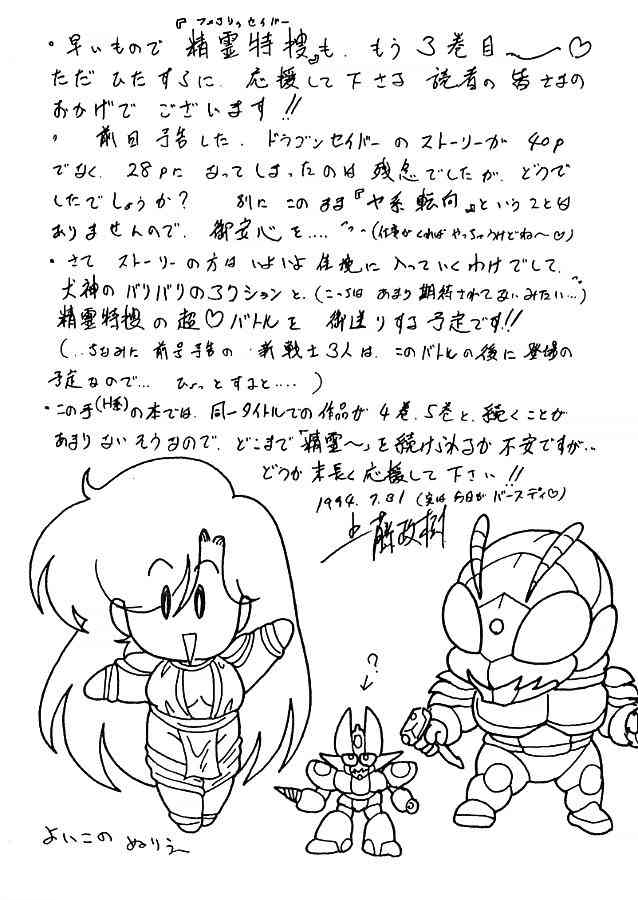 『フェアリィセイバー
・早いもので 精霊特捜』も、もう3巻目〜♡
ただ ひたすらに、応援して下さる 読者の皆さまの
おかげで ございます!!
・ 前回予告した、ドラゴンセイバーのストーリーが 40P
でなく、28Pに なってしまったのは 残念でしたが、どうで
したでしょうか? 別に このまま『ヤ系転向』ということは
ありませんので、御安心を‥‥ (仕事がくれば やっちゃうけどね〜♡)
・さて ストーリーの方は いよいよ佳境に 入っていくわけでして、
犬神のバリバリのアクションと、(こっちは あまり期待されてないみたい…)
精霊特捜の超♡バトルを 御送りする予定です!!
(‥ちなみに 前号予告の 新戦士3人は、このバトルの後に登場の
予定なので… ひょっとすると‥‥ )
・この手(H系)の本では、同一タイトルでの作品が 4巻、5巻と、続くことが
あまりないそうなので、どこまで「精霊〜」を続けられるか 不安ですが‥
どうか末長く応援して下さい!!
1994.7.31 (実は今日がバースディ♡)
政樹
?
よいこの ぬりえ